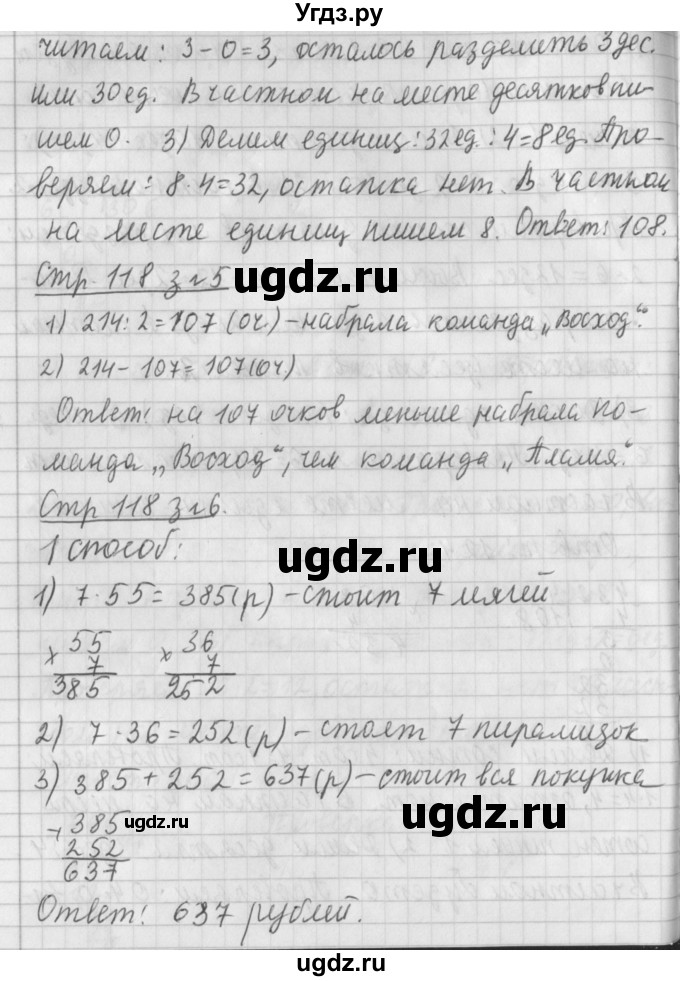 Угдз.ру
читаем: 3-0=3, осталось разделить 3 дес.
или 30 ед. В частном на месте десятков пи-
шем 0. 3) Делим единиц: 32 ед.: 4=8 ед. Про-
веряем: 8·4=32, остатка нет. В частном
на месте единиц пишем 8. Ответ: 108.
Стр. 118 з.№5
ugdz.ru ugdz.ru
1) 214:2=107 (оч.) - набрала команда „Восход".
2) 214-107=107 (оч.)
Ответ: на 107 очков меньше набрала ко-
манда „Восход", чем команда „Пламя".
Стр 118 з.№6.
1 способ:
ugdz.ru
1) 7·55=385(р) - стоит 7 мячей
× 55 × 36
7 7
385 252
2) 7·36=252(р) - стоят 7 пирамидок
3) 385+252=637(р) - стоит вся покупка
+ 385
252
637
ugdz.ru ugdz.ru
Ответ: 637 рублей.
ugdz.ru
ugdz.ru